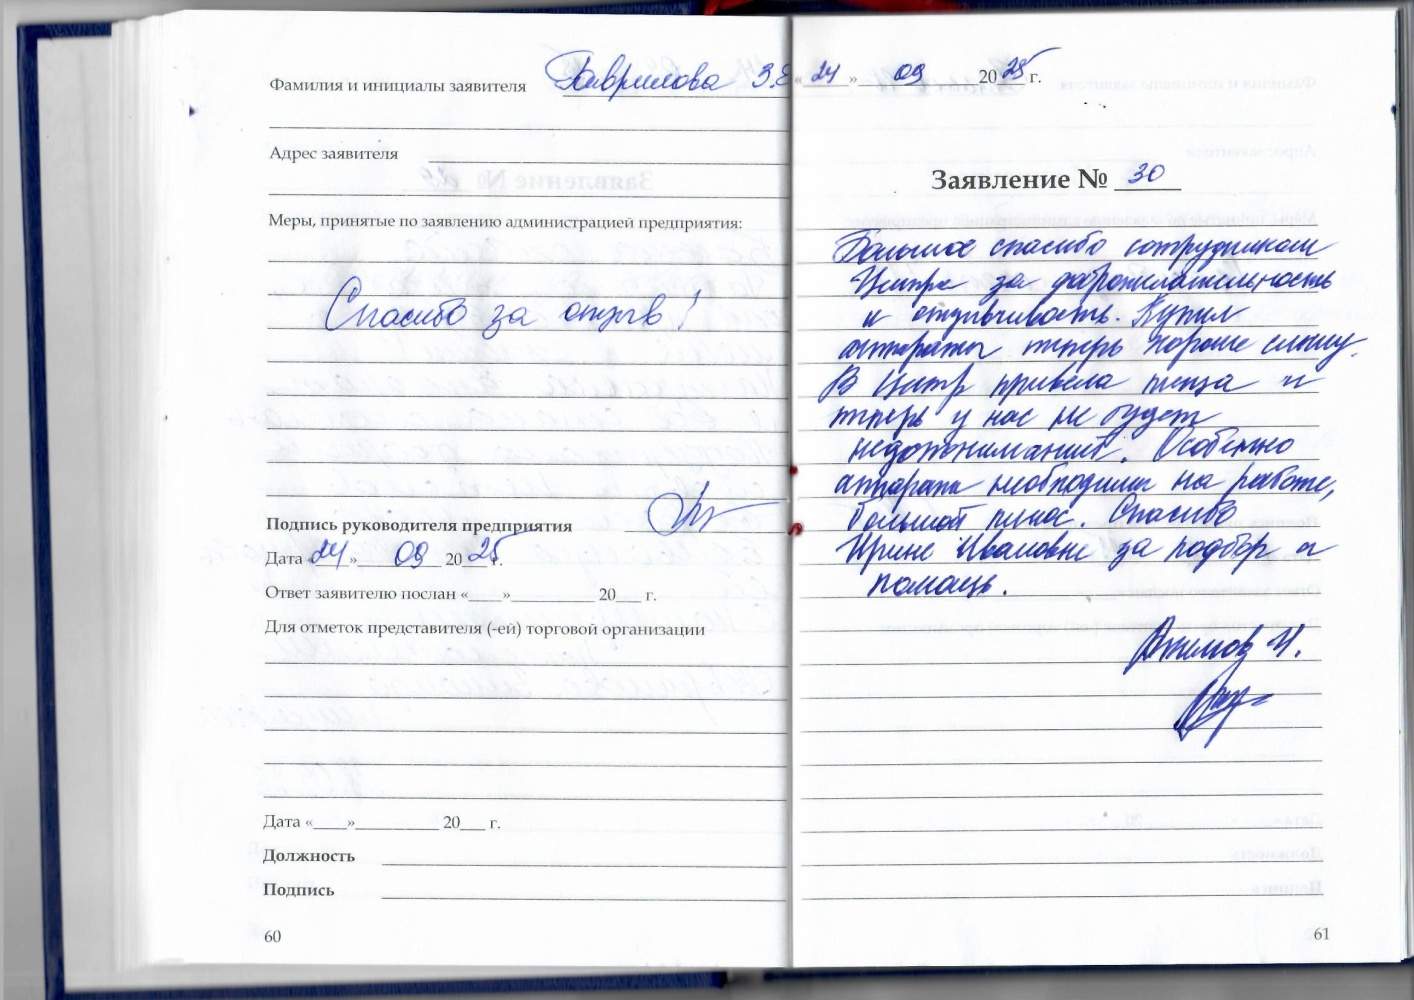 Фамилия и инициалы заявителя Гаврилова З.Е
Адрес заявителя
Меры, принятые по заявлению администрацией предприятия:
Спасибо за отзыв!
Подпись руководителя предприятия
Дата «24» 09 2025 г.
Ответ заявителю послан «____»__________ 20___ г.
Для отметок представителя (-ей) торговой организации
Дата «____»__________ 20___ г.
Должность
Подпись
60
«24» 09 2025 г.
Заявление № 30
Большое спасибо сотрудникам
Центра за доброжелательность
и отзывчивость. Купил
аппараты теперь хорошо слышу.
В Центр привела теща и
теперь у нас не будет
недопониманий. Особенно
аппараты необходимы на работе,
Спасибо
Ирине Ивановне за подбор и
помощь.
Акимов И.
61